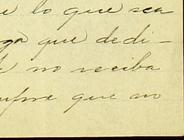 e lo que sea
ga que dedi-
no reciba
que no